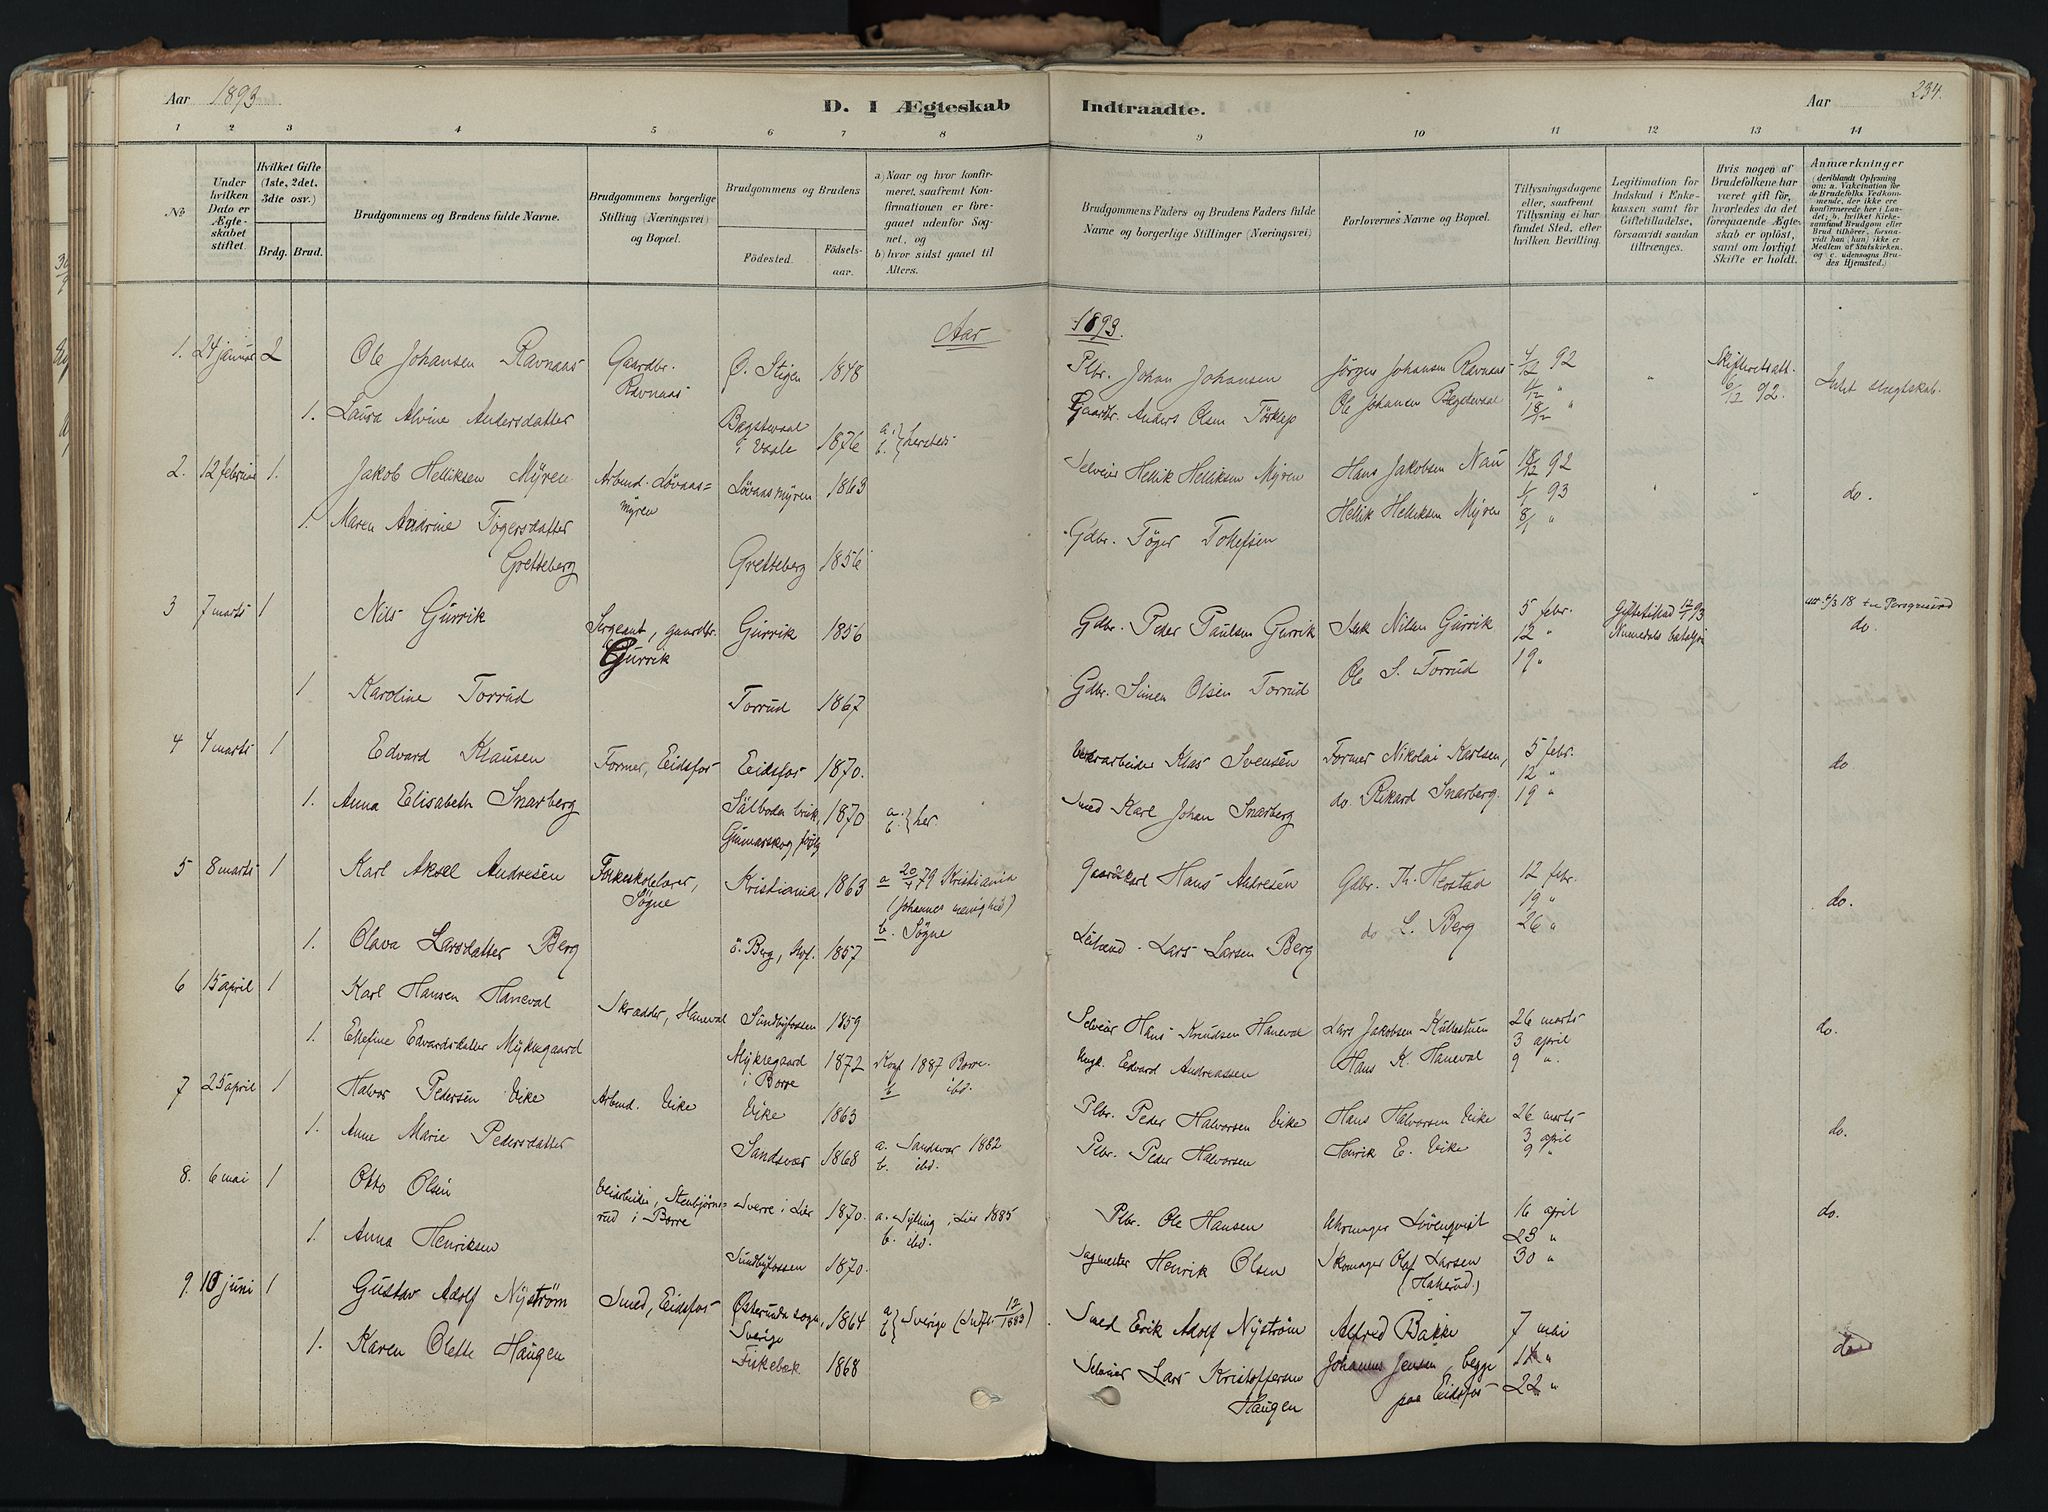 Aar 1893
D. I Ægteskab
Indtraadte.
Aar
234.
1 2 3 4 5 6 7 8 9 10 11 12 13 14
No
Under hvilken Dato er Ægteskabet stiftet.
Hvilket Gifte (1ste, 2det, 3die osv.)
Brdg. Brud.
Brudgommens og Brudens fulde Navne.
Brudgommens borgerlige Stilling (Næringsvei) og Bopæl.
Brudgommens og Brudens
Fødested.
Fødselsaar.
a) Naar og hvor konfirmeret, saafremt Konfirmationen er foregaaet udenfor Sognet, og
b) hvor sidst gaaet til Alters.
Brudgommens Faders og Brudens Faders fulde Navne og borgerlige Stillinger (Næringsvei)
Forlovernes Navne og Bopæl.
Tillysningsdagene eller, saafremt Tillysning ei har fundet Sted, efter hvilken Bevilling.
Legitimation for Indskud i Enkekassen samt for Giftetilladelse, forsaavidt saadan tiltrænges.
Hvis nogen af Brudefolkene har været gift før, hvorledes da det foregaaende Ægteskab er opløst, samt om lovligt Skifte er holdt.
Anmærkninger
(deriblandt Oplysning om: a. Vakcination for de Brudefolks Vedkommende, der ikke ere konfirmerede her i Landet; b. hvilket Kirkesamfund Brudgom eller Brud tilhører, forsaavidt han (hun) ikke er Medlem af Statskirken, og c. udensogns Brudes Hjemsted.)
Aar 1893.
1. 24 januar 2 Ole Johansen Ravnaas Gaardbr. Ravnaas Ø. Stigen 1848 Plbr. Johan Johansen Jörgen Johansen Ravnaas 4/12 92 " Skifteretsatt. 6/12 92. Intet slægtskab.
1. Laura Alvine Andersdatter i Vaale 1876 a. b. } Gaardbr. Anders Olsen Ole Johansen 11/12 " 18/12 "
2. 12 februar 1. Jakob Helliksen Mÿren Arbmd. Lövaas=mÿren Lövaasmÿren 1863 Selveier Hellik Helliksen Mÿren Hans Jakobsen Nau 18/12 92 " " do.
1. Maren Andrine Tögersdatter Gretteberg Gretteberg 1856 Gdbr. Töger Tollefsen Hellik Helliksen Mÿren 1/1 93 8/1 "
3 7 marts 1 Nils Gurrik Sergeant, gaardbr. Gurrik Gurrik 1856 Gdbr. Peder Paulsen Gurrik Nilsen Gurrik 5 febr. 12 " 19 " Giftetillad 12/1 93 Numedals bataljon do.
1 Karoline Torrud Torrud 1867 Gdbr. Simen Olsen Torrud Ole S. Torrud
4 4 marts 1 Edvard Klausen Former, Eidsfos Eidsfos 1870. Klas Svensen Former Nikolai Karlsen, 5 febr. 12 " 19 " do.
1. Anna Elisabeth Snarberg Sälboda bruk, Gunnarskog 1870 a. b. } her. Smed Karl Johan Snarberg do. Rikard Snarberg.
5 8 marts 1 Karl Aksel Andresen Folkeskolelærer, Sögne Kristiania 1863 a 20/4 79 Kristiania (Johannes menighed) b. Sögne Gaardskarl Hans Andresen Gdbr. Th. Hestad 12 febr. 19 " 26 " do.
1. Olava Larsdatter Berg ö. Berg, 1857 Lars Larsen Berg do L. Berg
6 15 april 1 Karl Hansen Haneval Skrædder, Haneval Sundbyfossen 1859 Selveier Hans Knudsen Haneval Lars Jakobsen Kullestuen 26 marts 3 april 9 ". do.
1. Ellefine Edvardsdatter Mÿkegaard Mÿkegaard i Borre 1872 Konf 1887 Borre. b ibd. Edvard Andreassen Hans K. Haneval
7 25 april 1 Halvor Pedersen Vike Arbmd. Vike Vike 1863 Plbr. Peder Halvorsen Vike Hans Halvorsen Vike 26 marts 3 april 9 " do.
1. Anne Marie Pedersdatter Sandsvær 1868 a. Sandsvær 1882 b. ibd. Plbr. Peder Halvorsen Henrik E. Vike
8. 6 mai 1 Otto Olsen Veiarbeider, Stenbjörnsrud i Borre Sverre i Lier 1870. a. Sÿlling i Lier 1885 b. ibd. Plbr. Ole Hansen Uhrmager Lövenqvist 16 april 23 " 30 " do.
1. Anna Henriksen Sundbyfossen 1870. Sagmester Henrik Olsen Skomager Olaf Larsen (Hakerud.)
9. 10 juni 1 Gustav Adolf Nÿström Smed, Eidsfos Österunda sogn, Sverige 1864 a b } Sverige (Indfl. 12/1 1883) Smed Erik Adolf Nÿström Alfred Bakke 7 mai 14 " 22 " do
1. Karen Olette Haugen Fiskebæk 1868 Selveier Lars Kristoffersen Haugen Johannes Jensen, begge paa Eidsfos